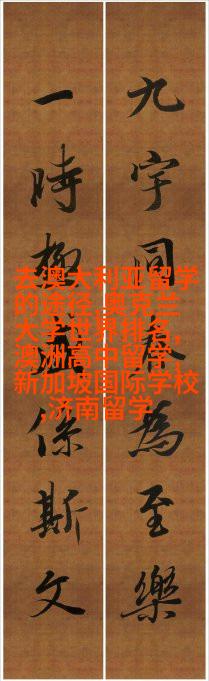 九宇同春為至樂
一時係斯文
去澳大利亚留学
的途径,奥克兰
大学世界排名,
澳洲高中留学,
新加坡国际学校
,济南留学